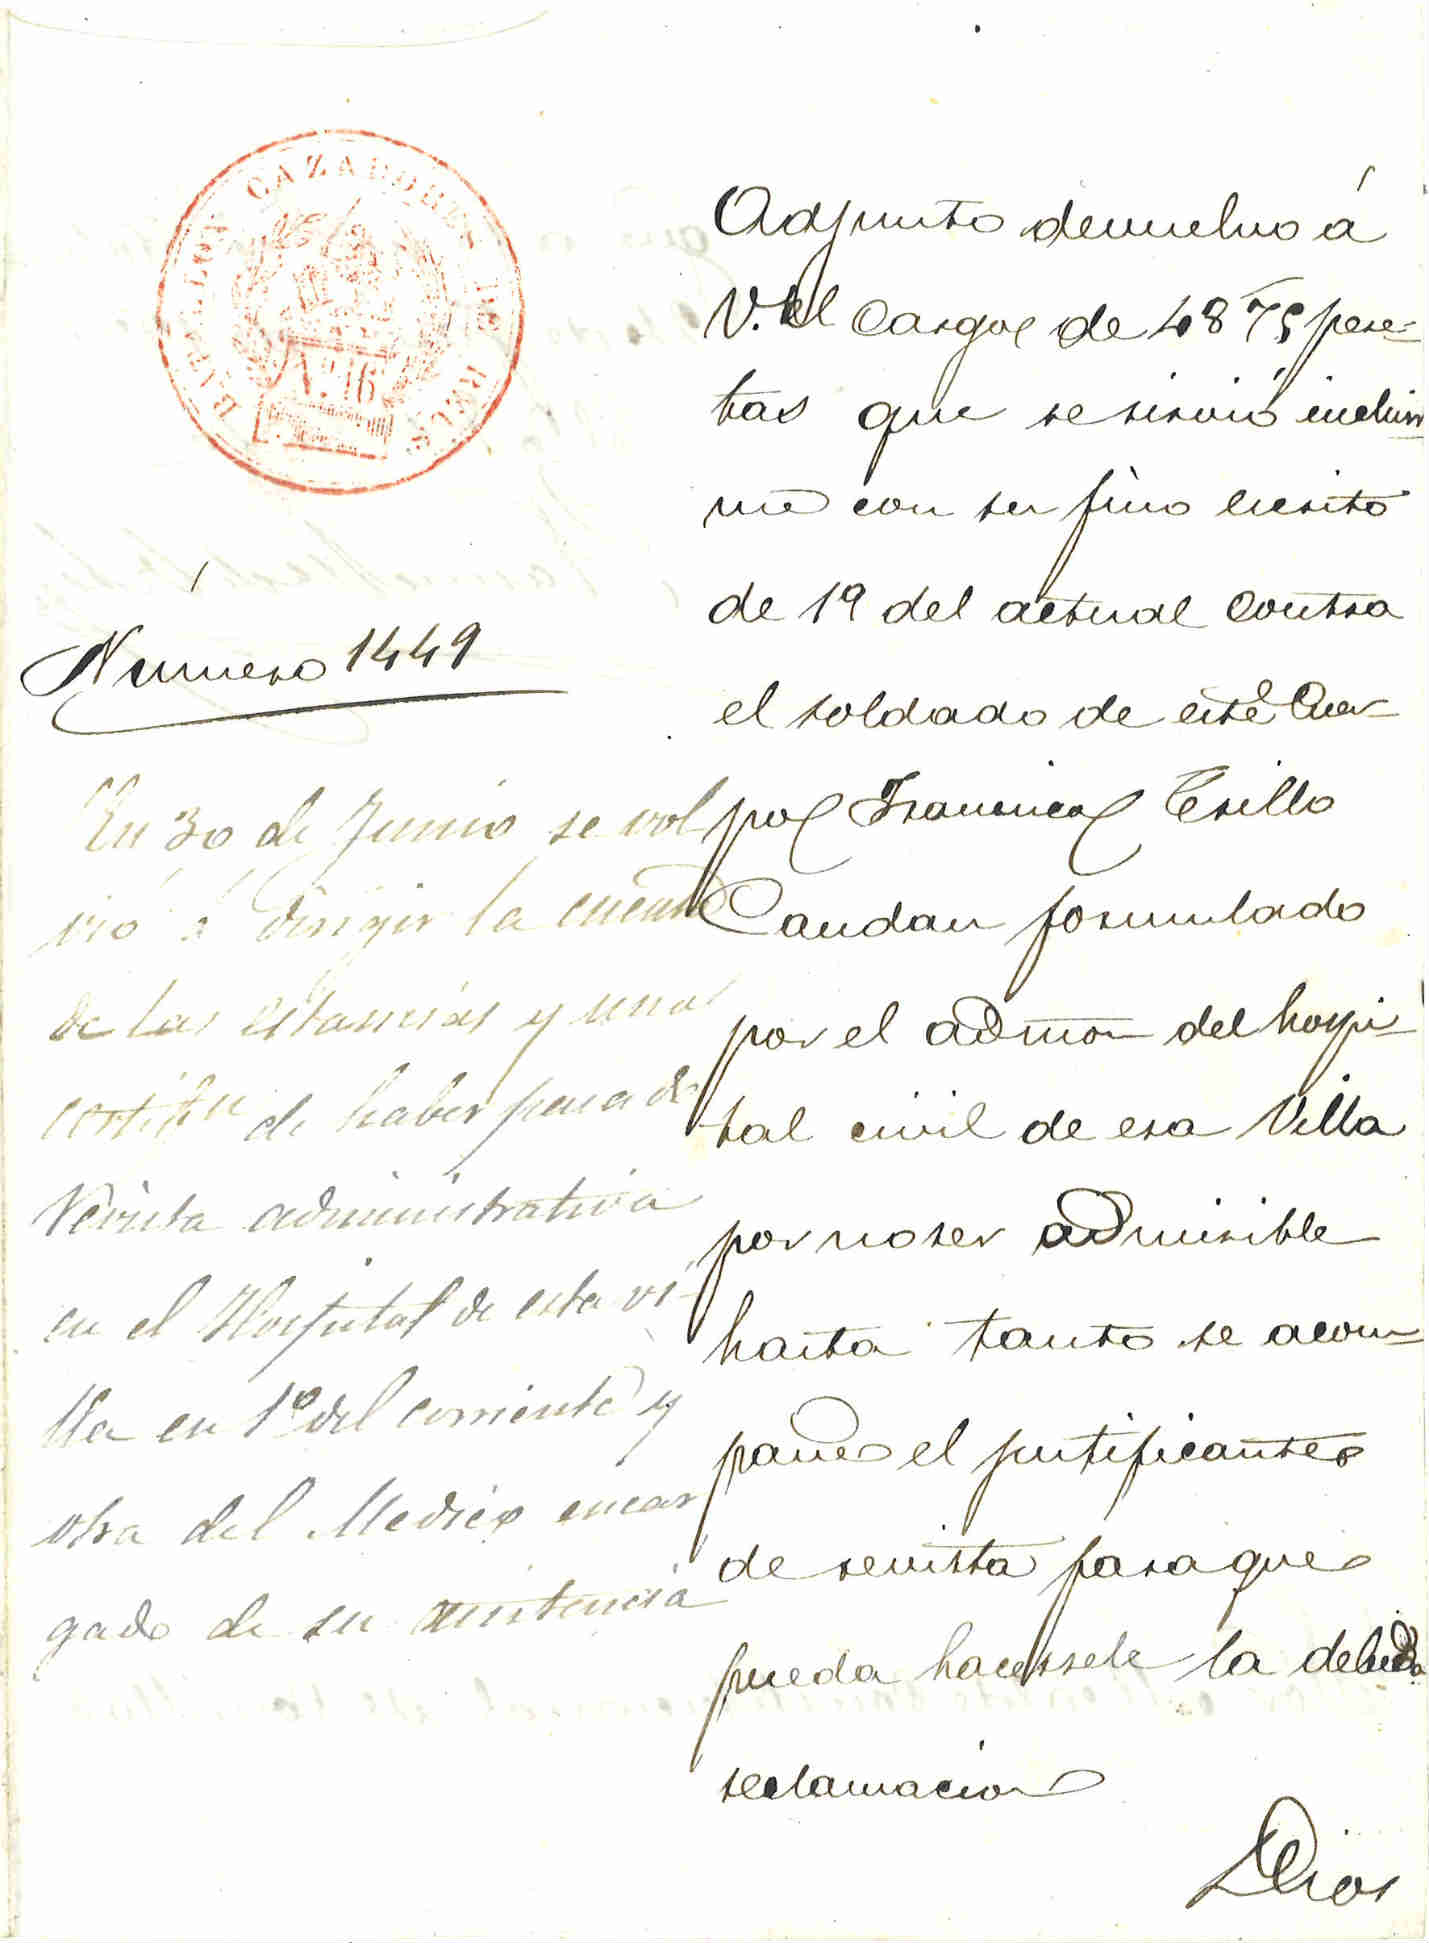 BATALLON CAZADORES DE REUS
Nº 16
Número 1449
En 30 de Junio se vol
vió á dirigir la cuenta
de las estancias y una
certifon de haber pasado
Revista administrativa
en el Hospital de esta vi-
lla en 1º del corriente y
otra del Medico encar
gado de su asistencia
Adjunto devuelvo á
V. el cargo de 48'75 pese-
tas que se sirvió incluir
me con su fino escrito
de 19 del actual contra
el soldado de este Cuer-
po Francisco Trillo
Candan formulado
por el admon del hospi-
tal civil de esa Villa
por no ser admisible
hasta tanto se acom-
pañe el justificante
de revista para que
pueda hacersele la debida
reclamacion
Dios